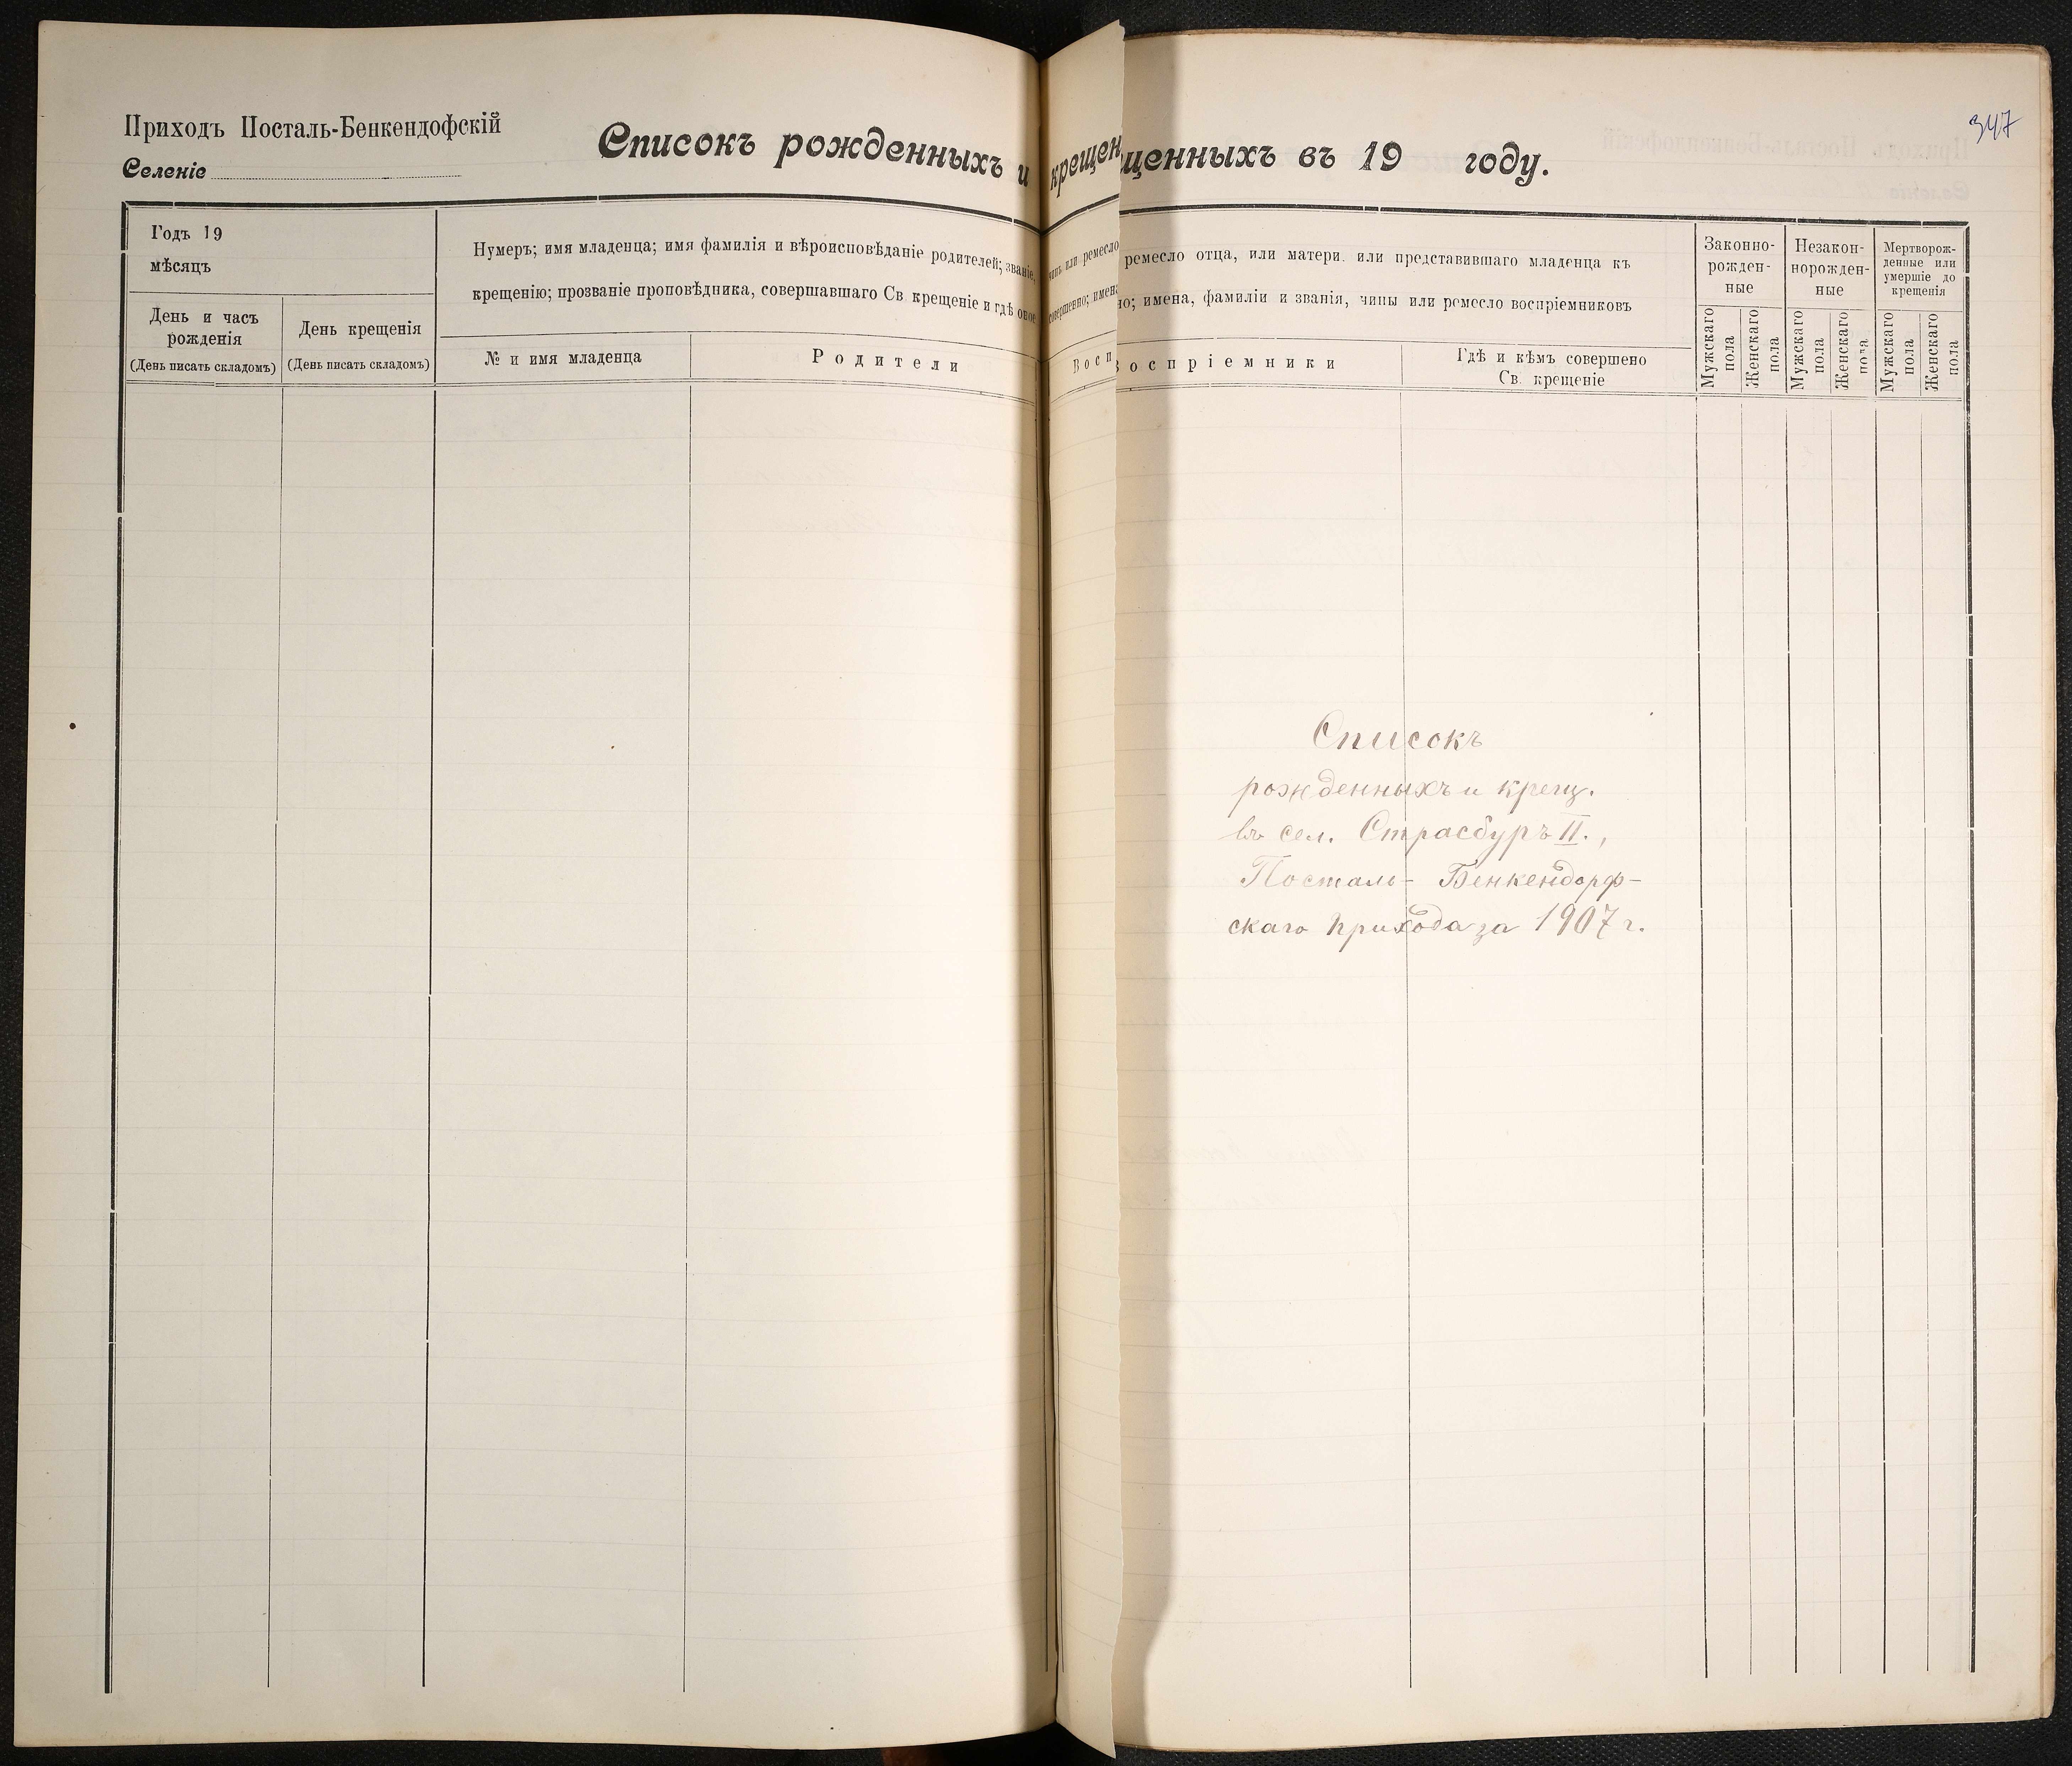 Приходъ Посталь-Бенкендофскій
Селеніе
Списокъ рожденныхъ и крещен
щенныхъ въ 19 году.
347
Годъ 19
мѣсяцъ
День и часъ
рожденія
(День писать складомъ)
День крещенія
(День писать складомъ)
Нумеръ; имя младенца; имя фамилія и вѣроисповѣданіе родителей; званіе,
крещенію; прозваніе проповѣдника, совершавшаго Св. крещеніе и гдѣ оное
№ и имя младенца
Родители
чинъ или ремесло
совершенно; имена
Восп
ремесло отца, или матери. или представившаго младенца къ
но; имена, фамиліи и званія, чины или ремесло воспріемниковъ
воспріемники
Гдѣ и кѣмъ совершено
Св. крещеніе
Законно-
рожден-
ные
Незакон-
норожден-
ные
Мертворож-
денные или
умершіе до
крещенія
Мужскаго
пола
Женскаго
пола
Мужскаго
пола
Женскаго
пола
Мужскаго
пола
Женскаго
пола
Списокъ
рожденныхъ и крещ.
въ сел. Страсбуръ II.,
Посталь- Бенкендорф-
скаго прихода за 1907 г.